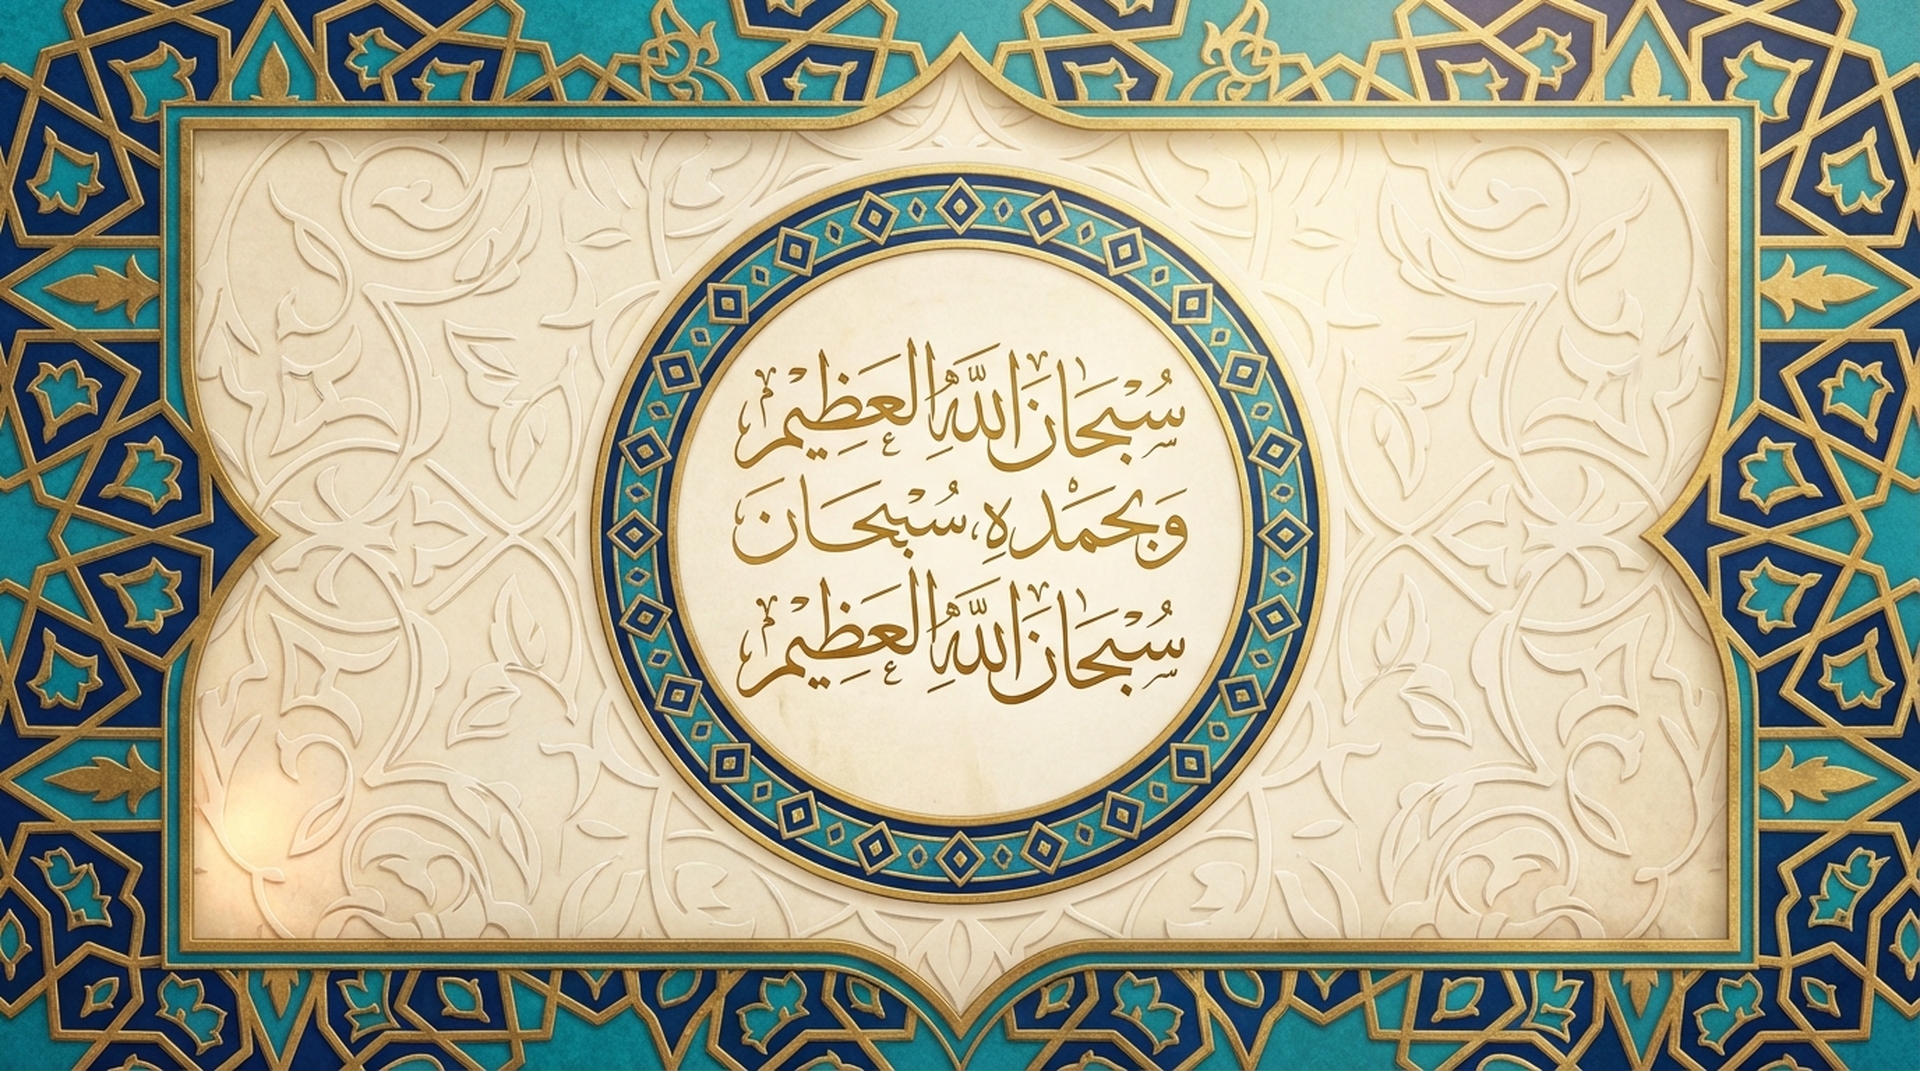 سُبْحَانَ اللَّهِ الْعَظِيمِ
وَبِحَمْدِهِ، سُبْحَانَ
سُبْحَانَ اللَّهِ الْعَظِيمِ